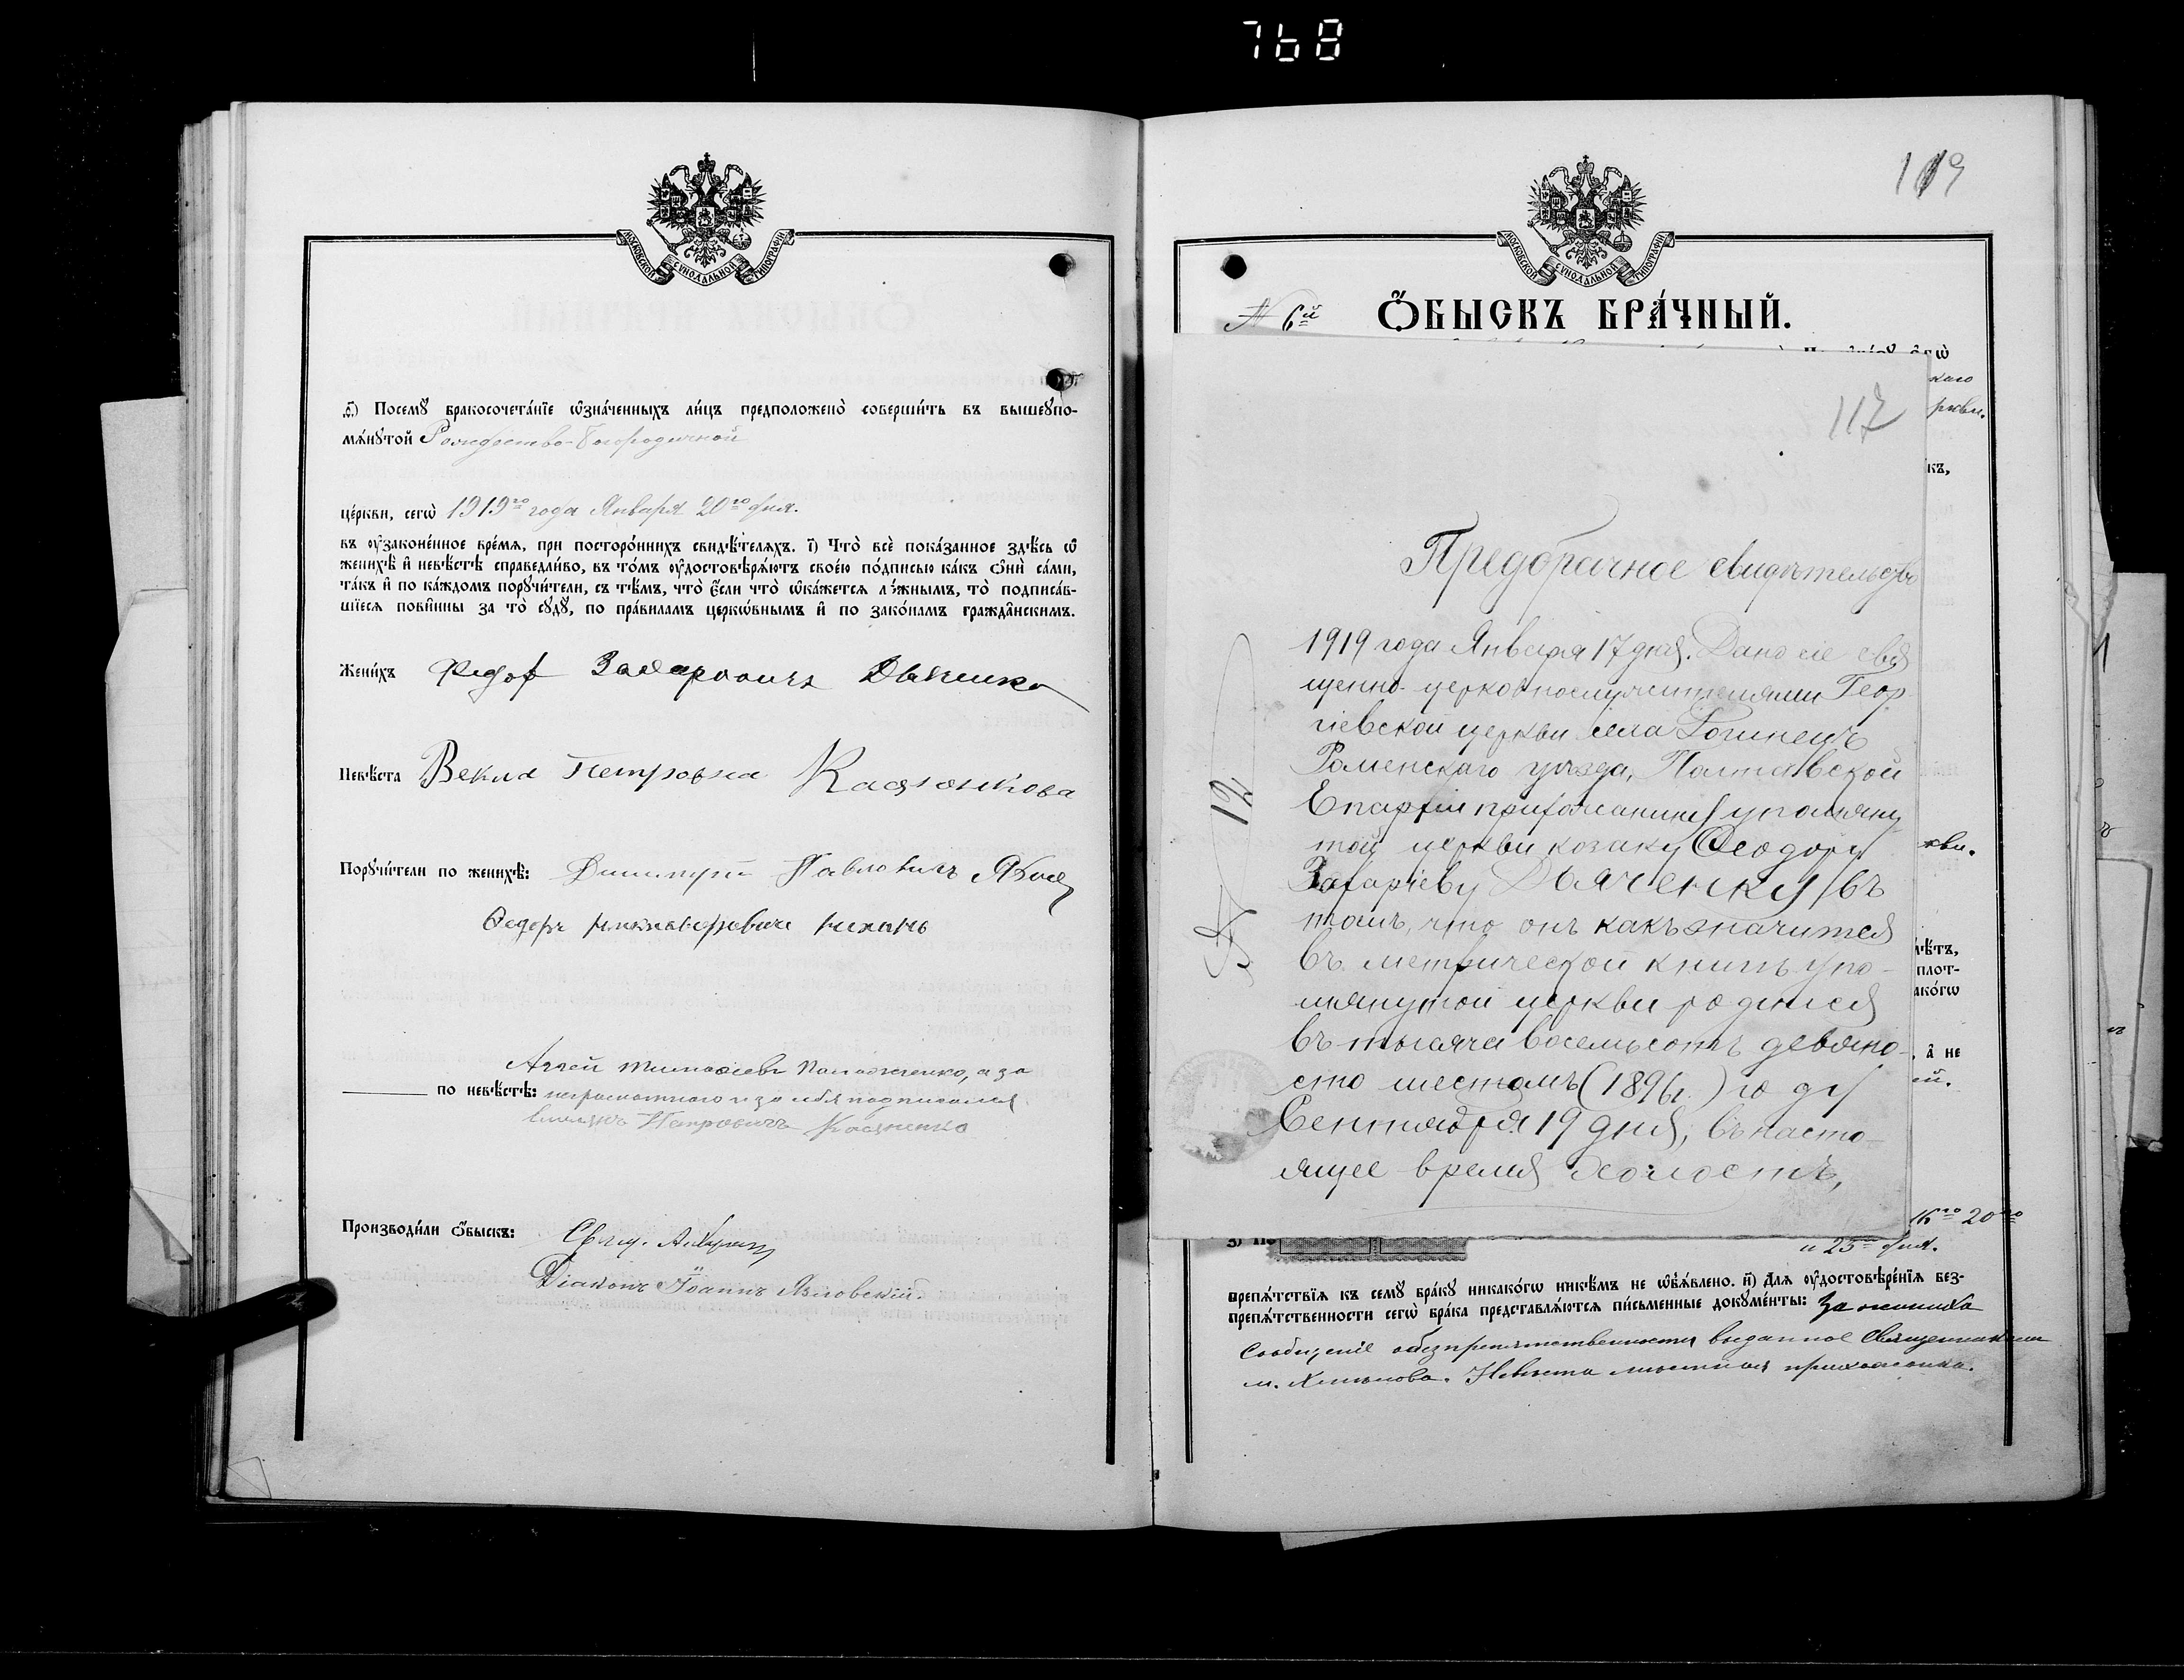 768
МОСКОВСКОЙ СѴНОДАЛЬНОЙ ТИПОГРАФІИ
ѳ҃) Посемꙋ̀ бракосочета́нїе ѡ҆зна́ченныхъ ли́цъ предположено̀ соверши́ть въ вышеꙋпо-
мѧ́нꙋтой Рождество-Богородичной
це́ркви, сегѡ̀ 1919го года Января 20го дня.
въ ᲂу҆законе́нное вре́мѧ, при посторо́ннихъ свидѣ́телѧхъ. і҃) Что̀ всѐ пока́занное здѣ́сь ѡ҆
женихѣ̀ и҆ невѣ́стѣ справедли́во, въ то́мъ ᲂу҆достовѣрѧ́ютъ свое́ю по́дписью ка́къ ѻ҆нѝ са́ми,
та́къ и҆ по ка́ждомъ порꙋчи́тели, съ тѣ́мъ, что̀ є҆́сли что̀ ѡ҆ка́жетсѧ ло́жнымъ, то̀ подписа́в-
шїесѧ пови́нны за то̀ сꙋдꙋ̀, по пра́виламъ церко́внымъ и҆ по зако́намъ гражда́нскимъ.
Жени́хъ Федор Захарович Дьяченко
Невѣ́ста Векла Петровна Касяненкова
Порꙋчи́тели по женихѣ̀: Димитрій Павловичъ
Федоръ
Тимофіевъ а за
по невѣ́стѣ: неграмотнаго и за себя подписался
Петровичъ Касяненко
Производи́ли ѻ҆́быскъ: Свящ.
Діаконъ Іоаннъ Язловскій.
119
МОСКОВСКОЙ СѴНОДАЛЬНОЙ ТИПОГРАФІИ
N 6й ѺБЫСКЪ БРА́ЧНЫЙ.
117
Предбрачное свидѣтельство
N 12
1919 года Января 17 дня. Дано сіе свя
щенно-церковнослужителями Геор
гіевской церкви села Гогинецъ
Роменскаго уѣзда, Полтавской
Епархіи прихожанину упомяну
той церкви козаку Ѳеодору
Захаріеву Дьяченку въ
томъ, что онъ какъ значится
въ метрической книгѣ упо-
мянутой церкви родился
въ тысяча восемьсотъ девяно-
сто шестомъ (1896г.) году
Сентября 19 дня, въ насто-
ящее время холостъ,
каго
ркви.
кви.
16го 20го
и 25го дня.
препѧ́тствїѧ къ семꙋ̀ бра́кꙋ никако́гѡ никѣ́мъ не ѡ҆б̾ѧ́влено. и҃) Длѧ ᲂу҆достовѣре́нїѧ без-
препѧ́тственности сегѡ̀ бра́ка представлѧ́ютсѧ пи́сьменные докꙋме́нты: За жениха
Сообщеніе о безпрепятственности выданное Священникомъ
м. Хмелова. Невѣста мѣстная прихожанка.